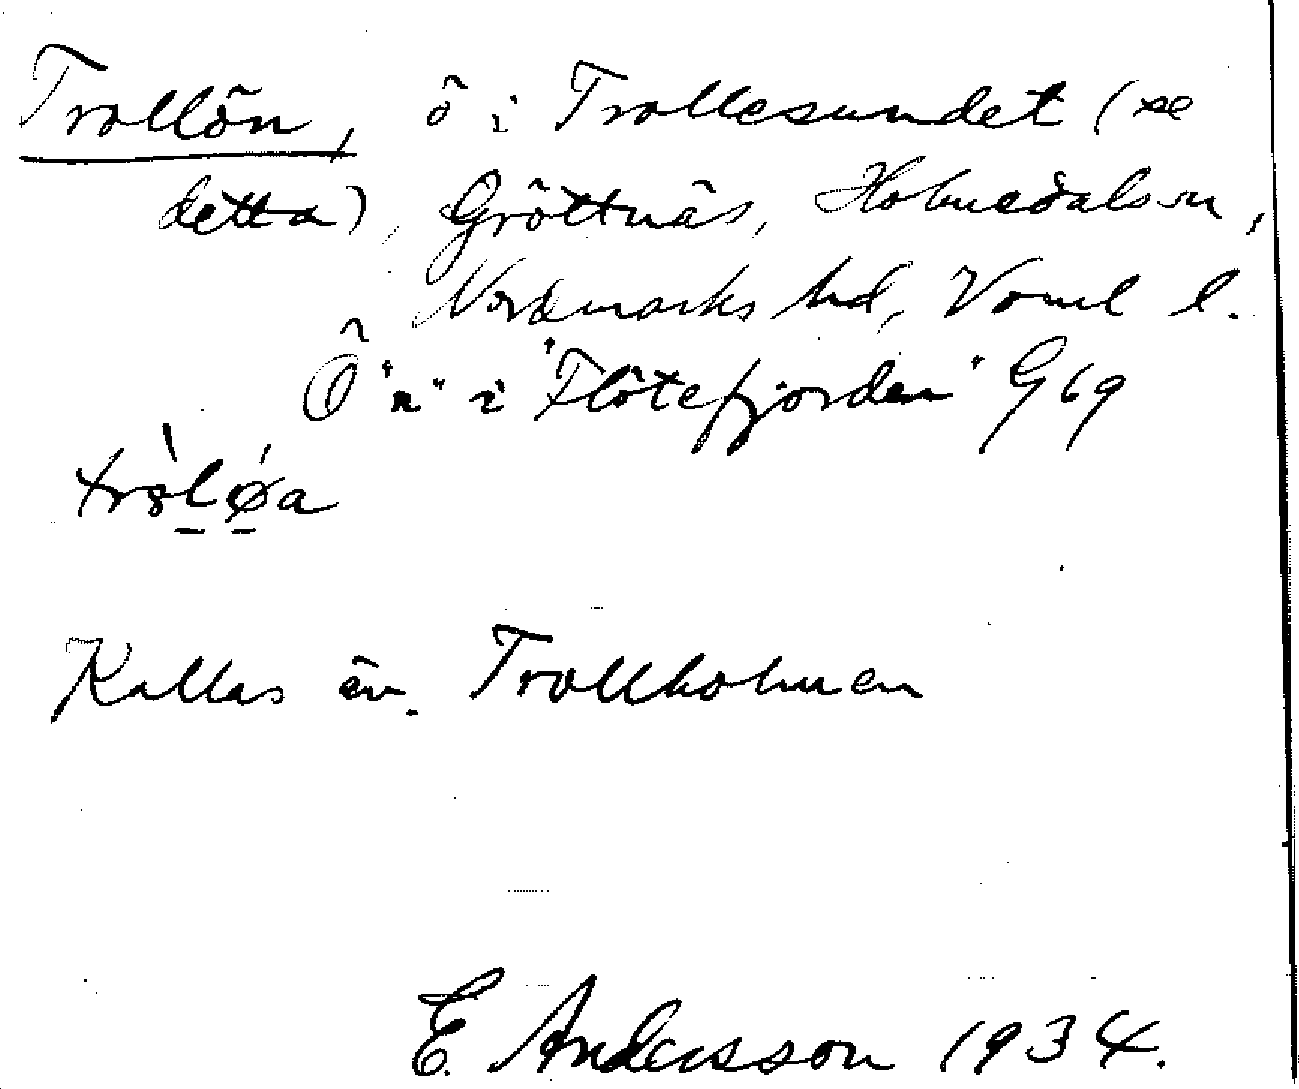 Trollön, ö i Trollesundet (se
detta), Gröttnäs, Holmedals sn,
Nordmarks hd, Vrml l.
Ö "n" i "Flötefjorden" G 69
Kallas äv. Trollholmen
E. Andersson 1934.